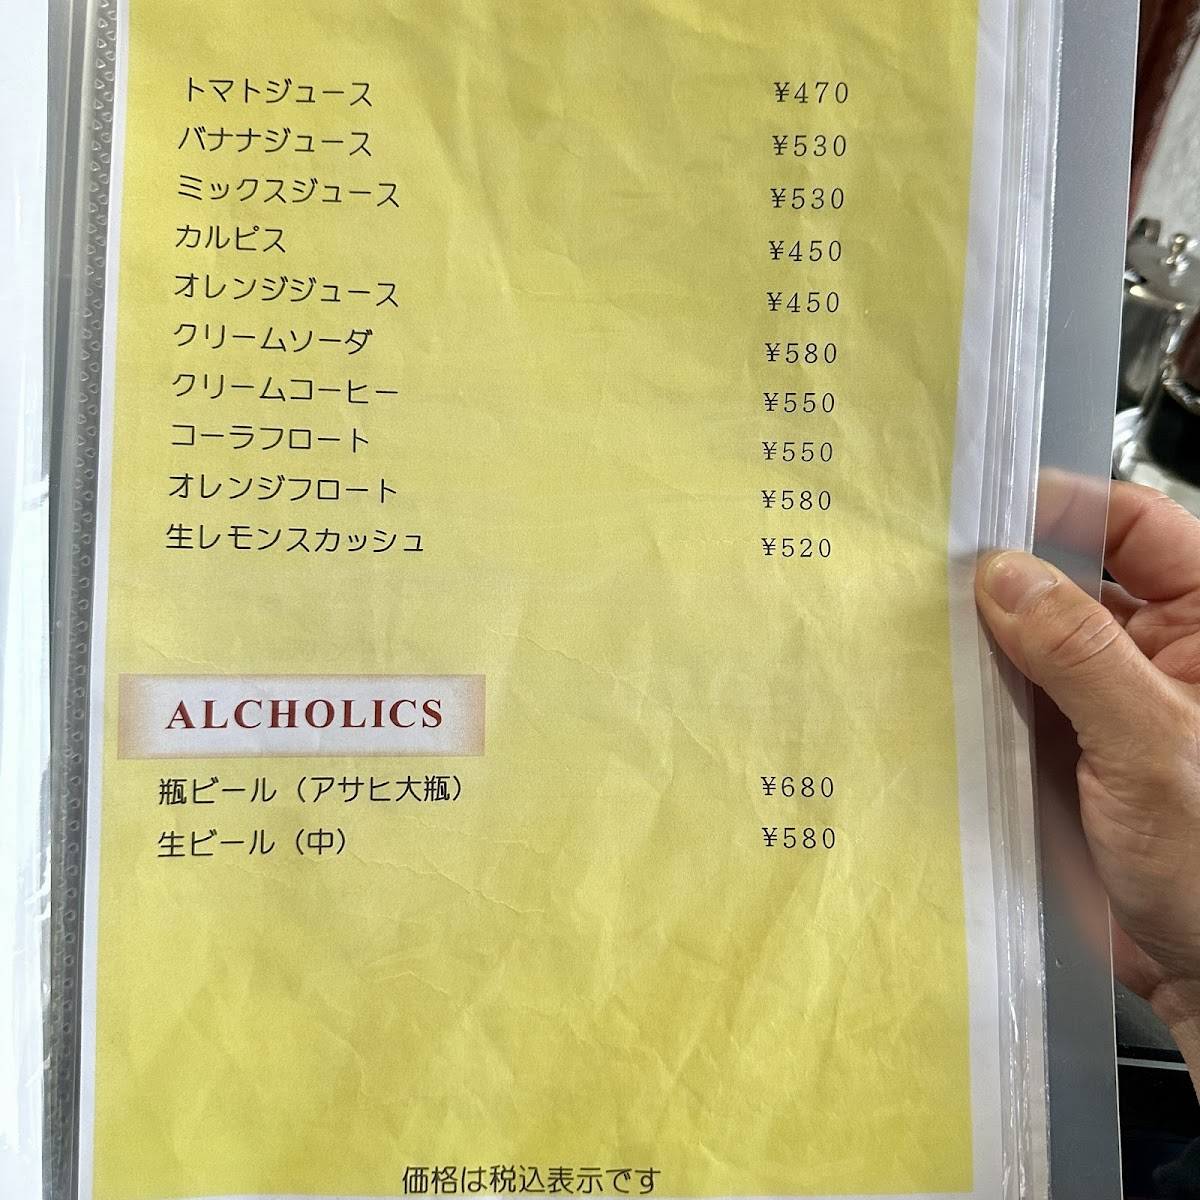 トマトジュース ¥470
バナナジュース ¥530
ミックスジュース ¥530
カルピス ¥450
オレンジジュース ¥450
クリームソーダ ¥580
クリームコーヒー ¥550
コーラフロート ¥550
オレンジフロート ¥580
生レモンスカッシュ ¥520
ALCHOLICS
瓶ビール（アサヒ大瓶） ¥680
生ビール（中） ¥580
価格は税込表示です